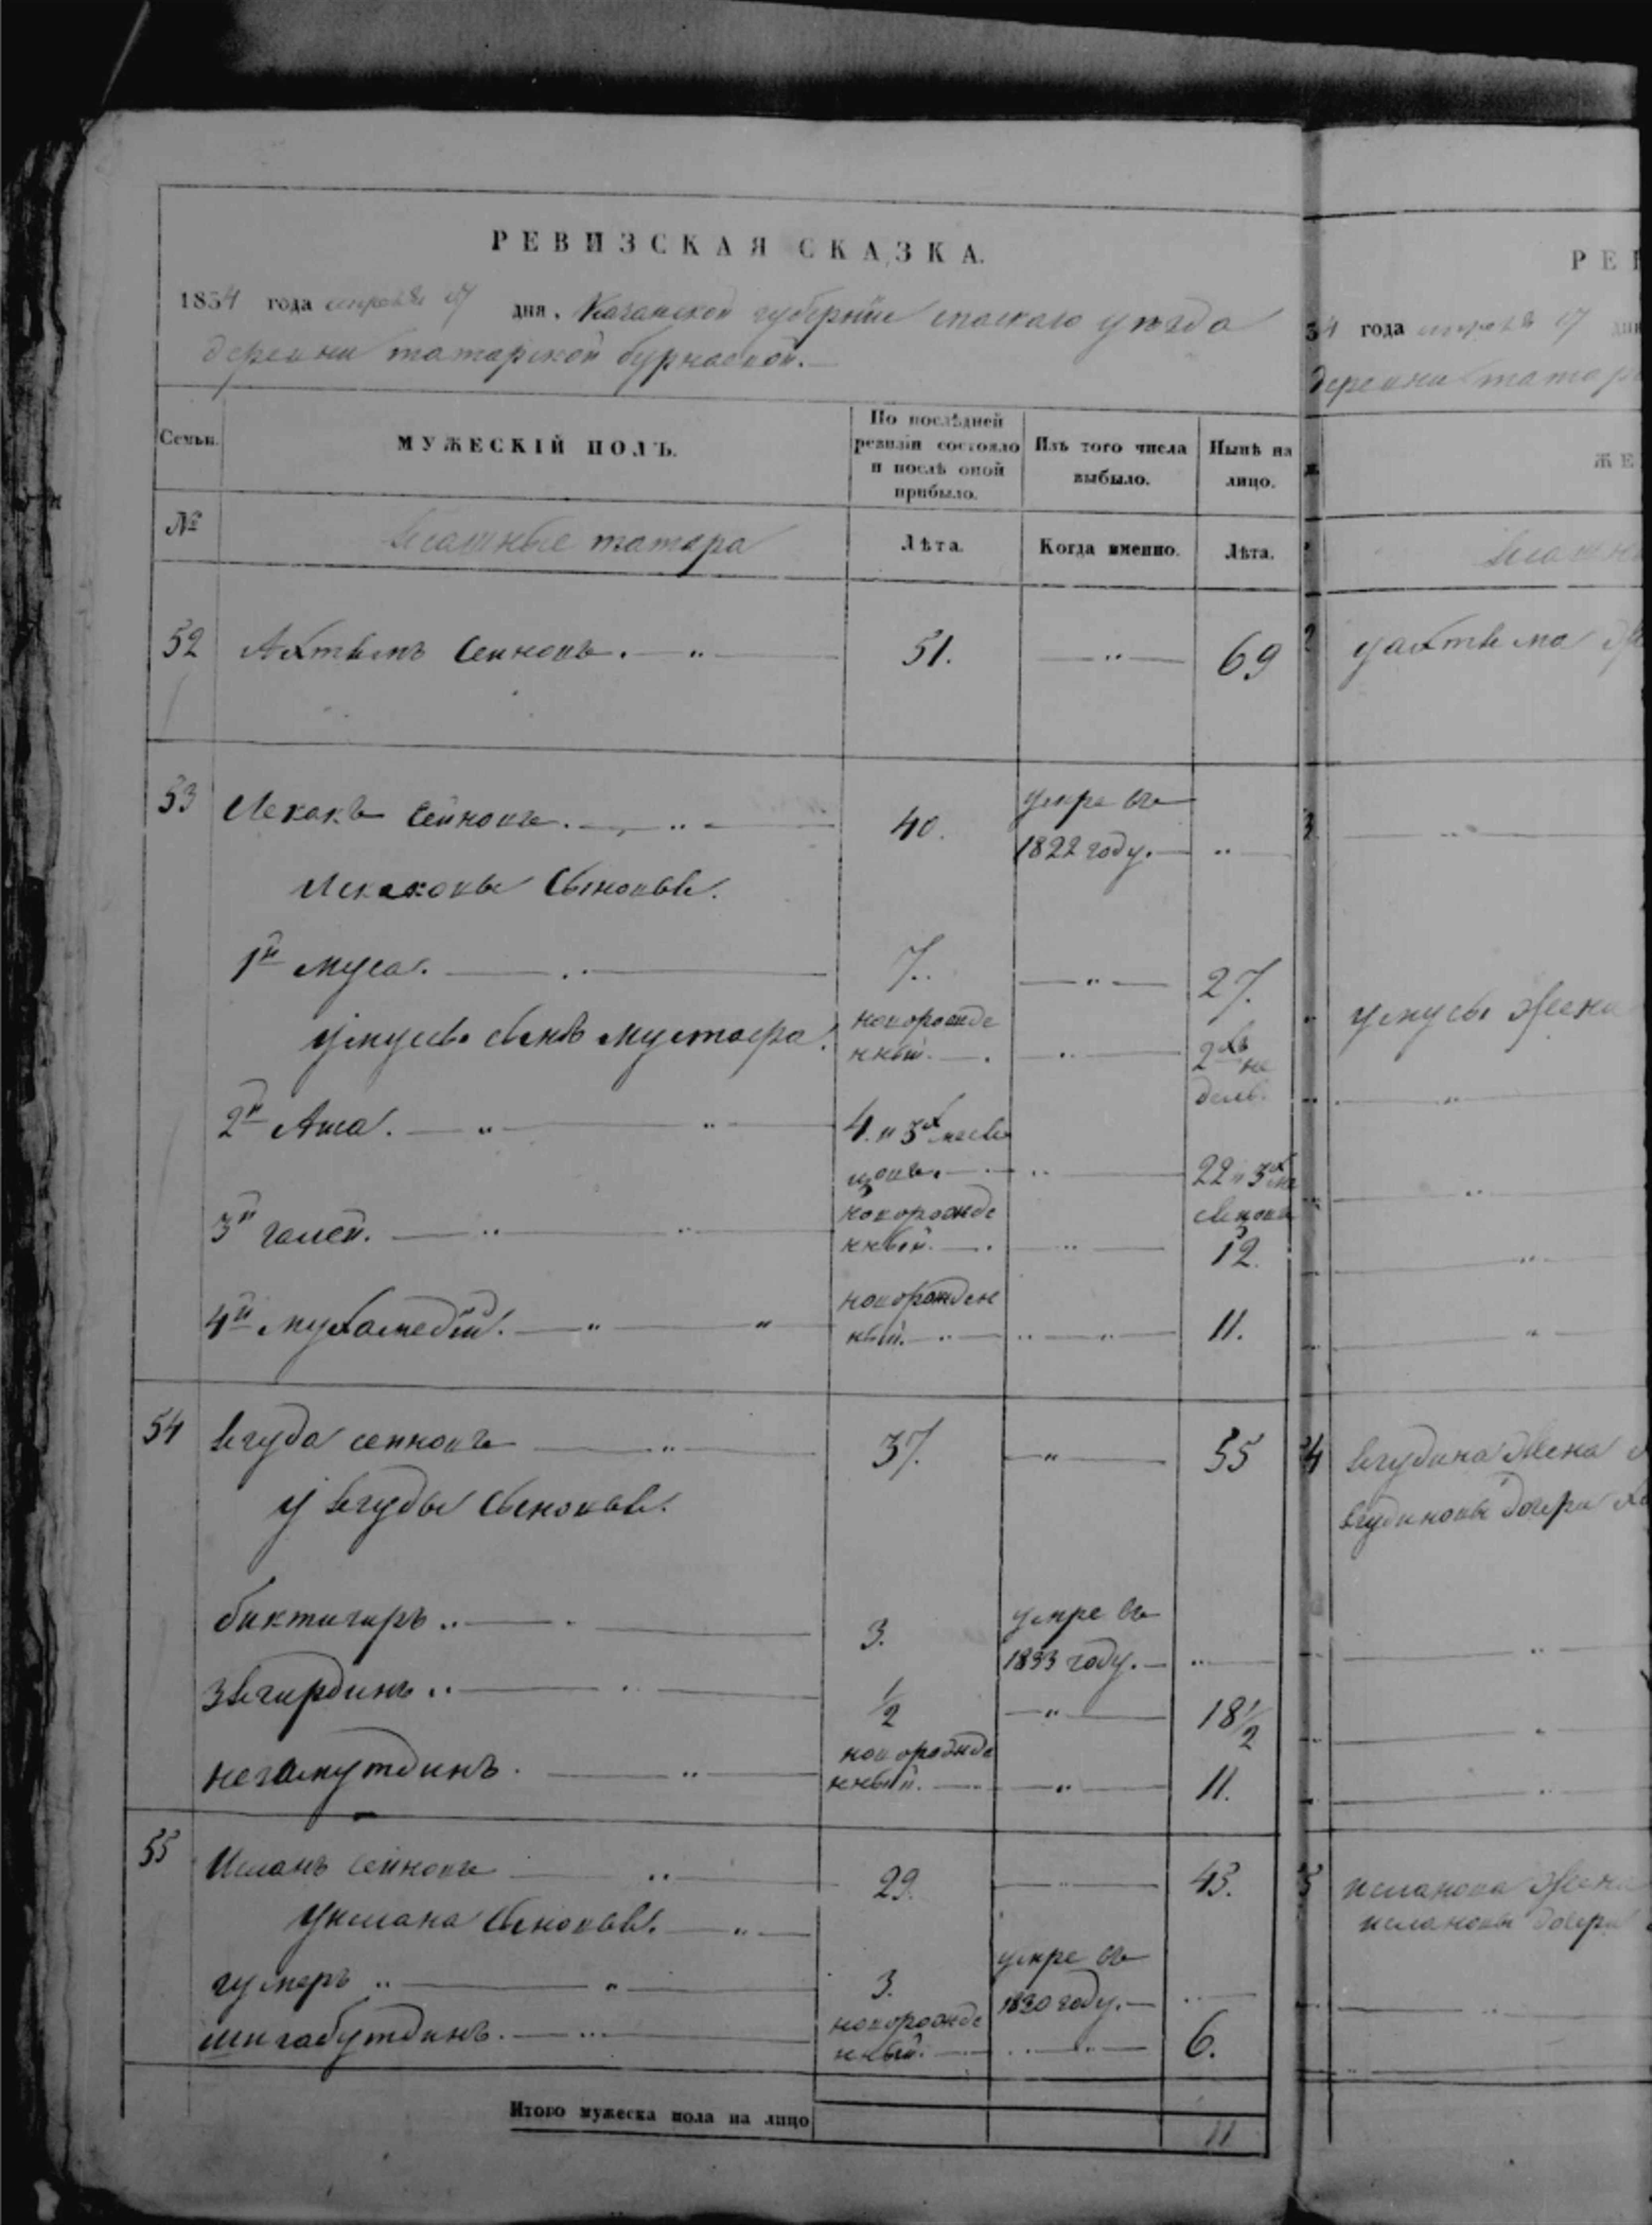 РЕВИЗСКАЯ СКАЗКА.
1834 года апреля 17 дня, Казанской губернии спаскаго уѣзда
деревни татарской бурнаевой.
Семьи.
МУЖЕСКІЙ ПОЛЪ.
По послѣдней
ревизіи состояло
и послѣ оной
прибыло.
Изъ того числа
выбыло.
Нынѣ на
лицо.
№
Ясашные татара
Лѣта.
Когда именно.
Лѣта.
52 Ахтямъ Сеиновъ. 51. 69
53 Искакъ Сеиновъ. 40. умре въ
1822 году.
Искаковы Сыновья.
1й Муса. 7. 27.
у мусы сынъ Мустафа. новорожде
нный. 2хъ не
дель.
2й 4. и 3х меся
цовъ. 22 и 3х ме
сяцовъ
3й галей. новорожде
нный. 12.
4й мухамедій. новорожден
ный. 11.
54 Ягуда сеиновъ 37. 55
у Ягуды Сыновья.
биктигиръ 3. умре въ
1833 году.
Зягирдинъ 1/2 18 1/2
негамутдинъ новорожде
нный. 11.
55 Исланъ сеиновъ 29. 45.
у ислана Сыновья.
гумеръ 3. умре въ
1830 году.
шигабутдинъ. новорожде
нный. 6.
Итого мужеска пола на лицо 11
РЕ
34 года апреля 17
деревни татар
ЖЕ
у ахтяма
у мусы жена
Ягудина жена
Ягудиновы дочери
исланова жена
ислановы дочери